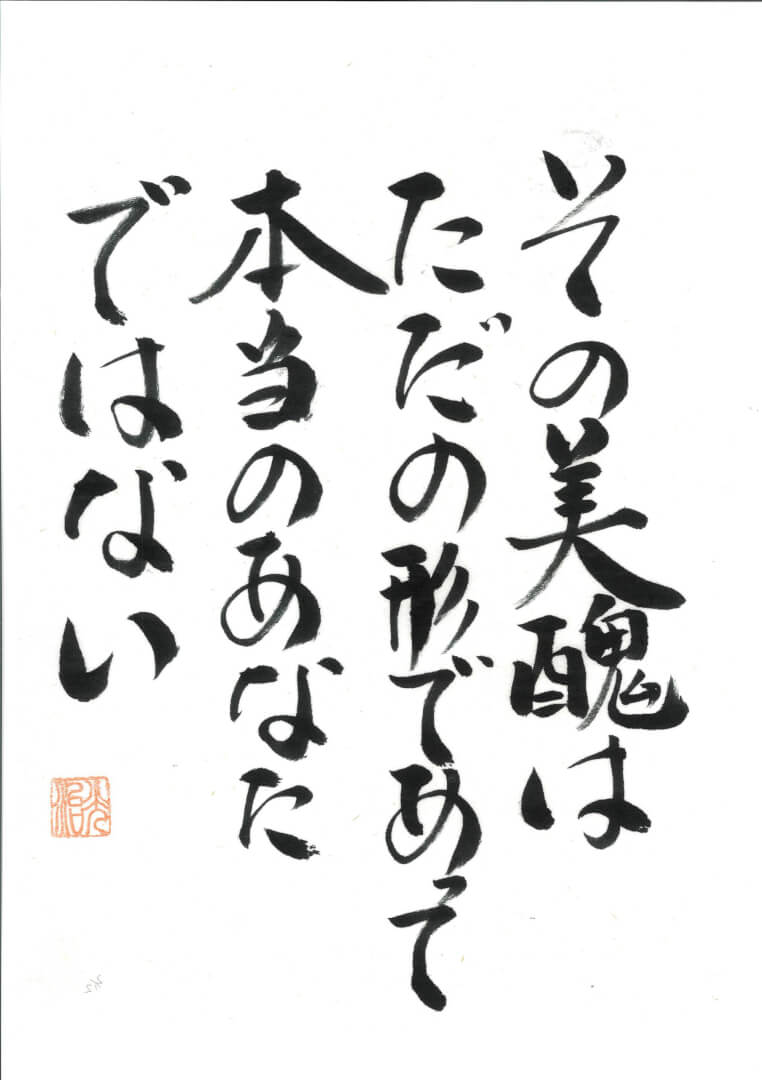 その美醜は
ただの形であって
本当のあなた
ではない